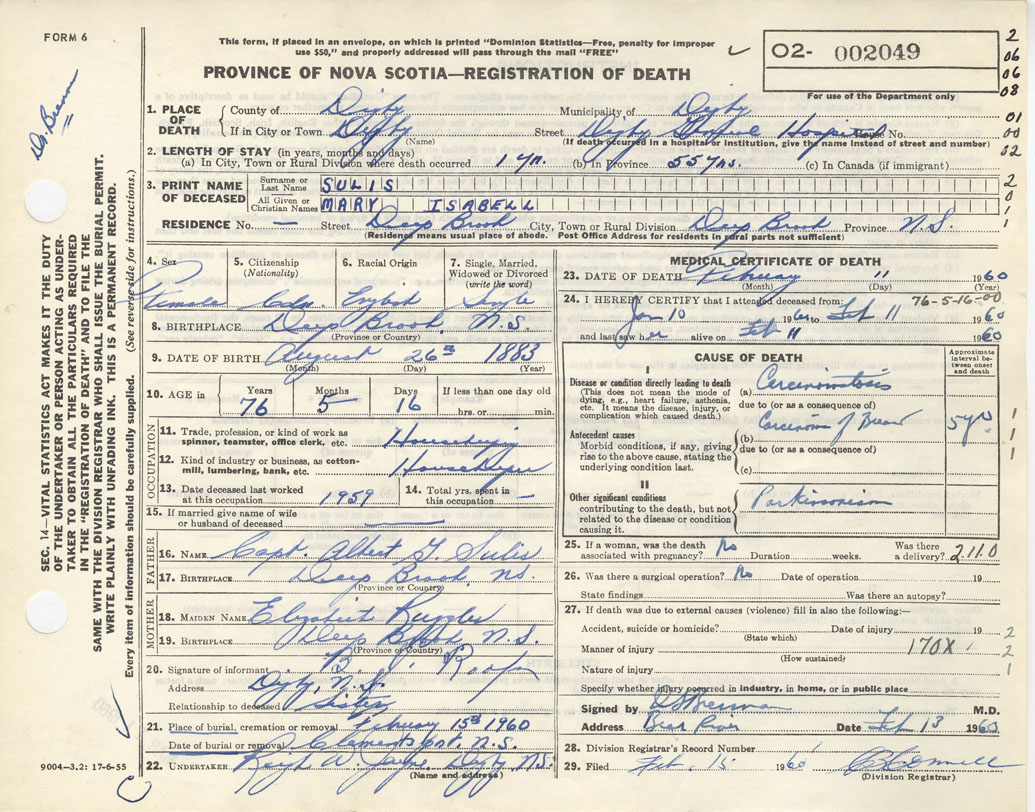 FORM 6
This form, if placed in an envelope, on which is printed "Dominion Statistics—Free, penalty for improper
use $50," and properly addressed will pass through the mail "FREE"
PROVINCE OF NOVA SCOTIA—REGISTRATION OF DEATH
O2- 002049
For use of the Department only
2
06
06
08
01
01
02
2
0
1
1
1. PLACE OF DEATH
County of Digby Municipality of Digby
If in City or Town Digby Street Digby General Hospital House No.
(Name) (If death occurred in a hospital or institution, give the name instead of street and number)
2. LENGTH OF STAY (in years, months and days)
(a) In City, Town or Rural Division where death occurred 1 yr. (b) in Province 55 yrs. (c) In Canada (if immigrant)
3. PRINT NAME OF DECEASED
Surname or Last Name SULIS
All Given or Christian Names MARY ISABELL
RESIDENCE No. — Street Deep Brook City, Town or Rural Division Deep Brook Province N.S.
(Residence means usual place of abode. Post Office Address for residents in rural parts not sufficient)
4. Sex
Female
5. Citizenship
(Nationality)
Cdn.
6. Racial Origin
English
7. Single, Married,
Widowed or Divorced
(write the word)
Single
8. BIRTHPLACE Deep Brook, N.S.
(Province or Country)
9. DATE OF BIRTH August 26th 1883
(Month) (Day) (Year)
10. AGE in
Years Months Days If less than one day old
76 5 16 hrs. or min.
OCCUPATION
11. Trade, profession, or kind of work as
spinner, teamster, office clerk, etc. Housekeeping
12. Kind of industry or business, as cotton-
mill, lumbering, bank, etc. Housekeeper
13. Date deceased last worked
at this occupation 1959
14. Total yrs. spent in
this occupation —
15. If married give name of wife
or husband of deceased —
FATHER
16. NAME Capt. Albert Sulis
17. BIRTHPLACE Deep Brook, N.S.
(Province or Country)
MOTHER
18. MAIDEN NAME Elizabeth Ruggles
19. BIRTHPLACE Deep Brook, N.S.
(Province or Country)
20. Signature of informant B. Roop
Address Digby, N.S.
Relationship to deceased Sister
21. Place of burial, cremation or removal February 15th 1960
Date of burial or removal Clementsport, N.S.
22. UNDERTAKER Digby N.S.
(Name and address)
MEDICAL CERTIFICATE OF DEATH
23. DATE OF DEATH February 11 1960
(Month) (Day)
76-5-16-00
24. I HEREBY CERTIFY that I attended deceased from:
Jan 10 1960 to Feb 11 1960
and last saw her alive on Feb 11 1960
CAUSE OF DEATH
Approximate
interval be-
tween onset
and death
I
Disease or condition directly leading to death
(This does not mean the mode of
dying, e.g., heart failure, asthenia,
etc. It means the disease, injury, or
complication which caused death.)
(a) Carcinomatosis
due to (or as a consequence of)
Antecedent causes
Morbid conditions, if any, giving
rise to the above cause, stating the
underlying condition last.
(b) Carcinoma of Breast 5 yrs
due to (or as a consequence of)
(c)
1
1
1
II
Other significant conditions
contributing to the death, but not
related to the disease or condition
causing it.
Parkinsonism
25. If a woman, was the death
associated with pregnancy? No Duration weeks. Was there
a delivery? 211.0
26. Was there a surgical operation? No Date of operation 19
State findings Was there an autopsy?
27. If death was due to external causes (violence) fill in also the following:—
Accident, suicide or homicide? Date of injury 19
(State which)
Manner of injury 170X
(How sustained)
Nature of injury
2
2
1
Specify whether injury occurred in industry, in home, or in public place
Signed by M.D.
Address Bear River Date Feb 13 1960
28. Division Registrar's Record Number 1
29. Filed Feb. 15 1960
(Division Registrar)
SEC. 14—VITAL STATISTICS ACT MAKES IT THE DUTY
OF THE UNDERTAKER OR PERSON ACTING AS UNDER-
TAKER TO OBTAIN ALL THE PARTICULARS REQUIRED
IN THE "REGISTRATION OF DEATH" AND TO FILE THE
SAME WITH THE DIVISION REGISTRAR WHO SHALL ISSUE THE BURIAL PERMIT.
WRITE PLAINLY WITH UNFADING INK. THIS IS A PERMANENT RECORD.
Every item of information should be carefully supplied. (See reverse side for instructions.)
9004-3.2: 17-6-55